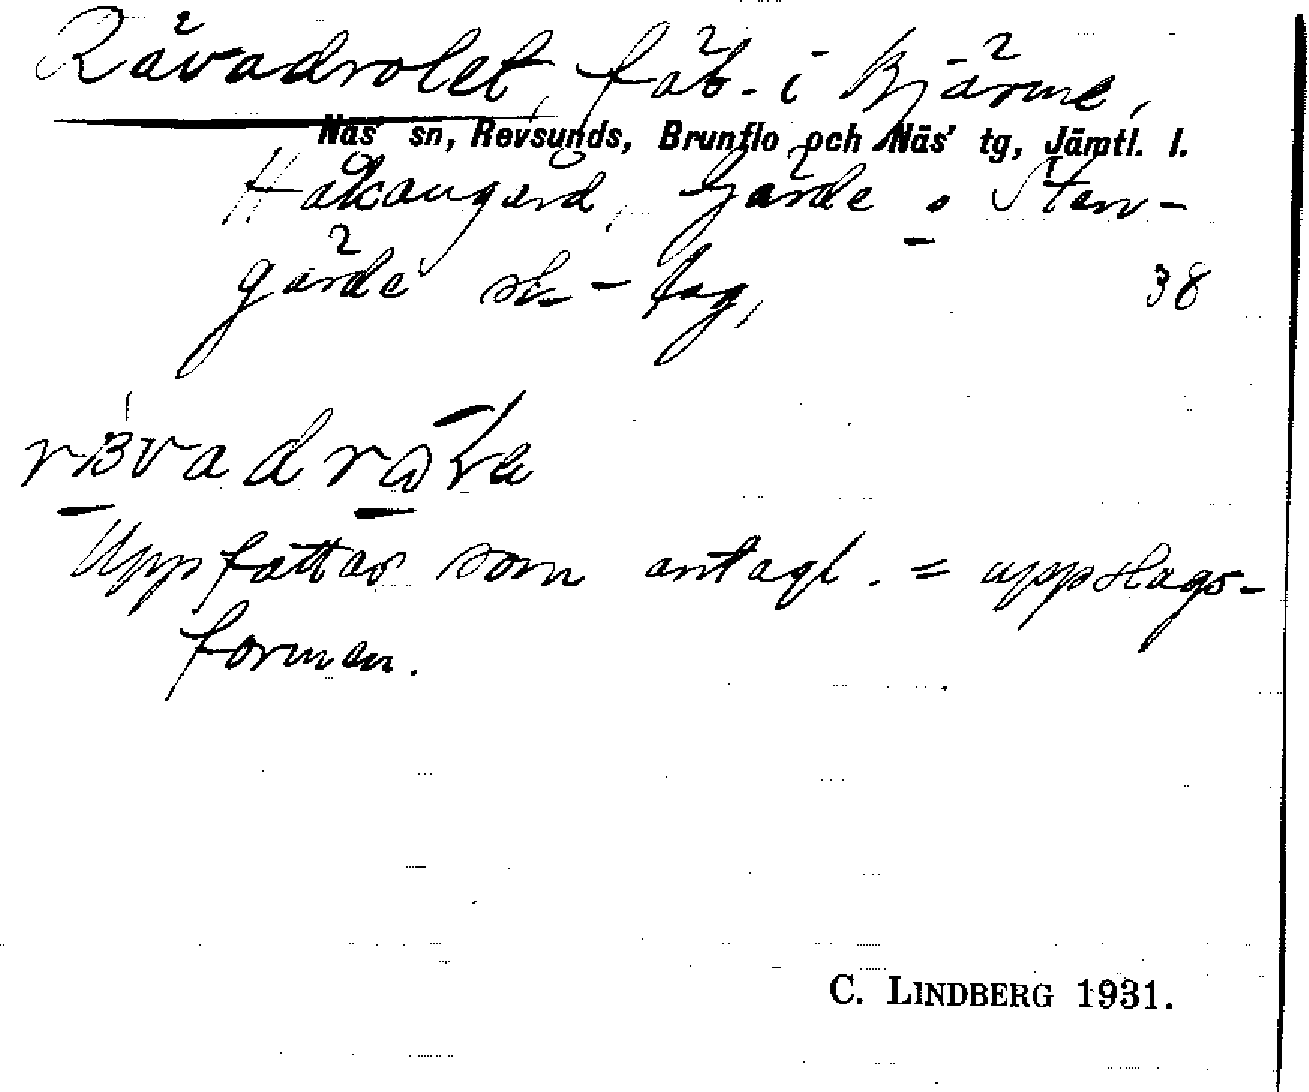 Rävadrolet, fäb. i Bjärme,
Näs sn, Revsunds, Brunflo och Näs tg, Jämtl. l.
Håkangård, Gärde o Sten-
gärde sk-lag, 38
Uppfattas som antagl. = uppslags-
formen.
C. LINDBERG 1931.